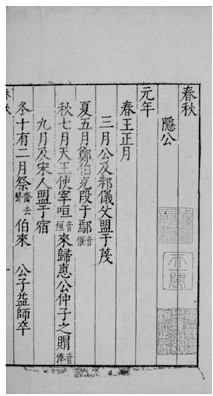 春秋
隱公
元年
春王正月
三月公及邾儀父盟于蔑
夏五月鄭伯克段于鄢音偃
秋七月天王使宰咺音來歸惠公仲子之賵音
九月及宋人盟于宿
冬十有二月祭去聲伯來 公子益師卒
春秋